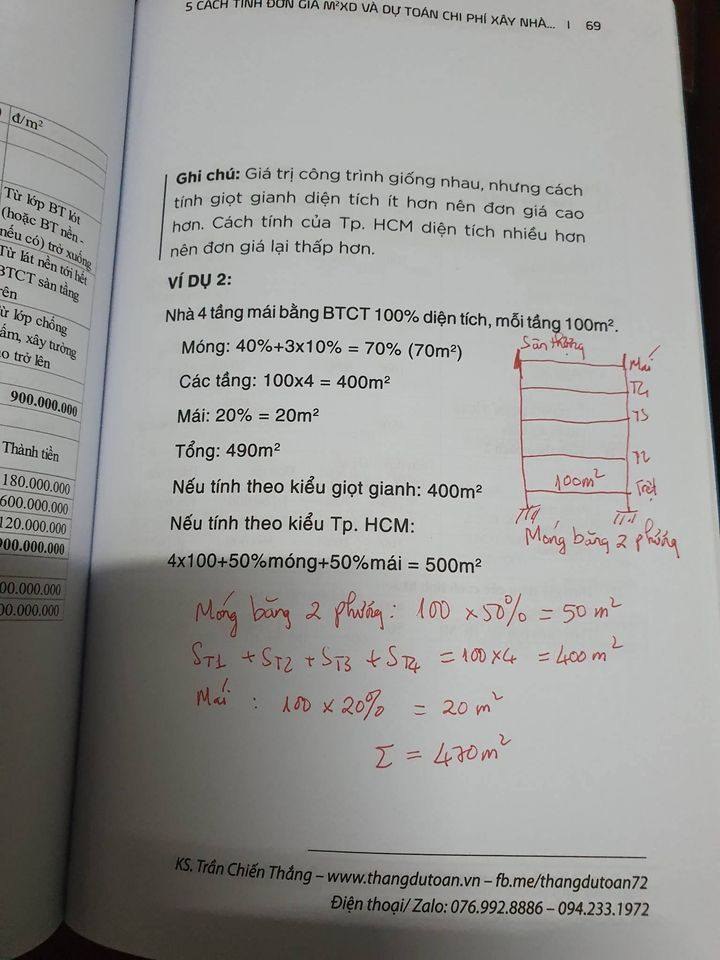 5 CÁCH TÍNH ĐƠN GIÁ M²XD VÀ DỰ TOÁN CHI PHÍ XÂY NHÀ... | 69
đ/m²
Từ lớp BT lót
(hoặc BT nền -
nếu có) trở xuống
Từ lát nền tới hết
BTCT sàn tầng
trên
Từ lớp chống
thấm, xây tường
trở lên
900.000.000
Thành tiền
180.000.000
600.000.000
120.000.000
900.000.000
00.000.000
00.000.000
Ghi chú: Giá trị công trình giống nhau, nhưng cách
tính giọt gianh diện tích ít hơn nên đơn giá cao
hơn. Cách tính của Tp. HCM diện tích nhiều hơn
nên đơn giá lại thấp hơn.
VÍ DỤ 2:
Nhà 4 tầng mái bằng BTCT 100% diện tích, mỗi tầng 100m².
Móng: 40%+3x10% = 70% (70m²)
Các tầng: 100x4 = 400m²
Mái: 20% = 20m²
Tổng: 490m²
Nếu tính theo kiểu giọt gianh: 400m²
Nếu tính theo kiểu Tp. HCM:
4x100+50%móng+50%mái = 500m²
Sân thượng
Mái
T4
T3
T2
100m² Trệt
Móng băng 2 phương
Móng băng 2 phương: 100 x 50% = 50 m²
ST1 + ST2 + ST3 + ST4 = 100x4 = 400m²
Mái : 100 x 20% = 20 m²
Σ = 470m²
KS. Trần Chiến Thắng – www.thangdutoan.vn – fb.me/thangdutoan72
Điện thoại/ Zalo: 076.992.8886 – 094.233.1972